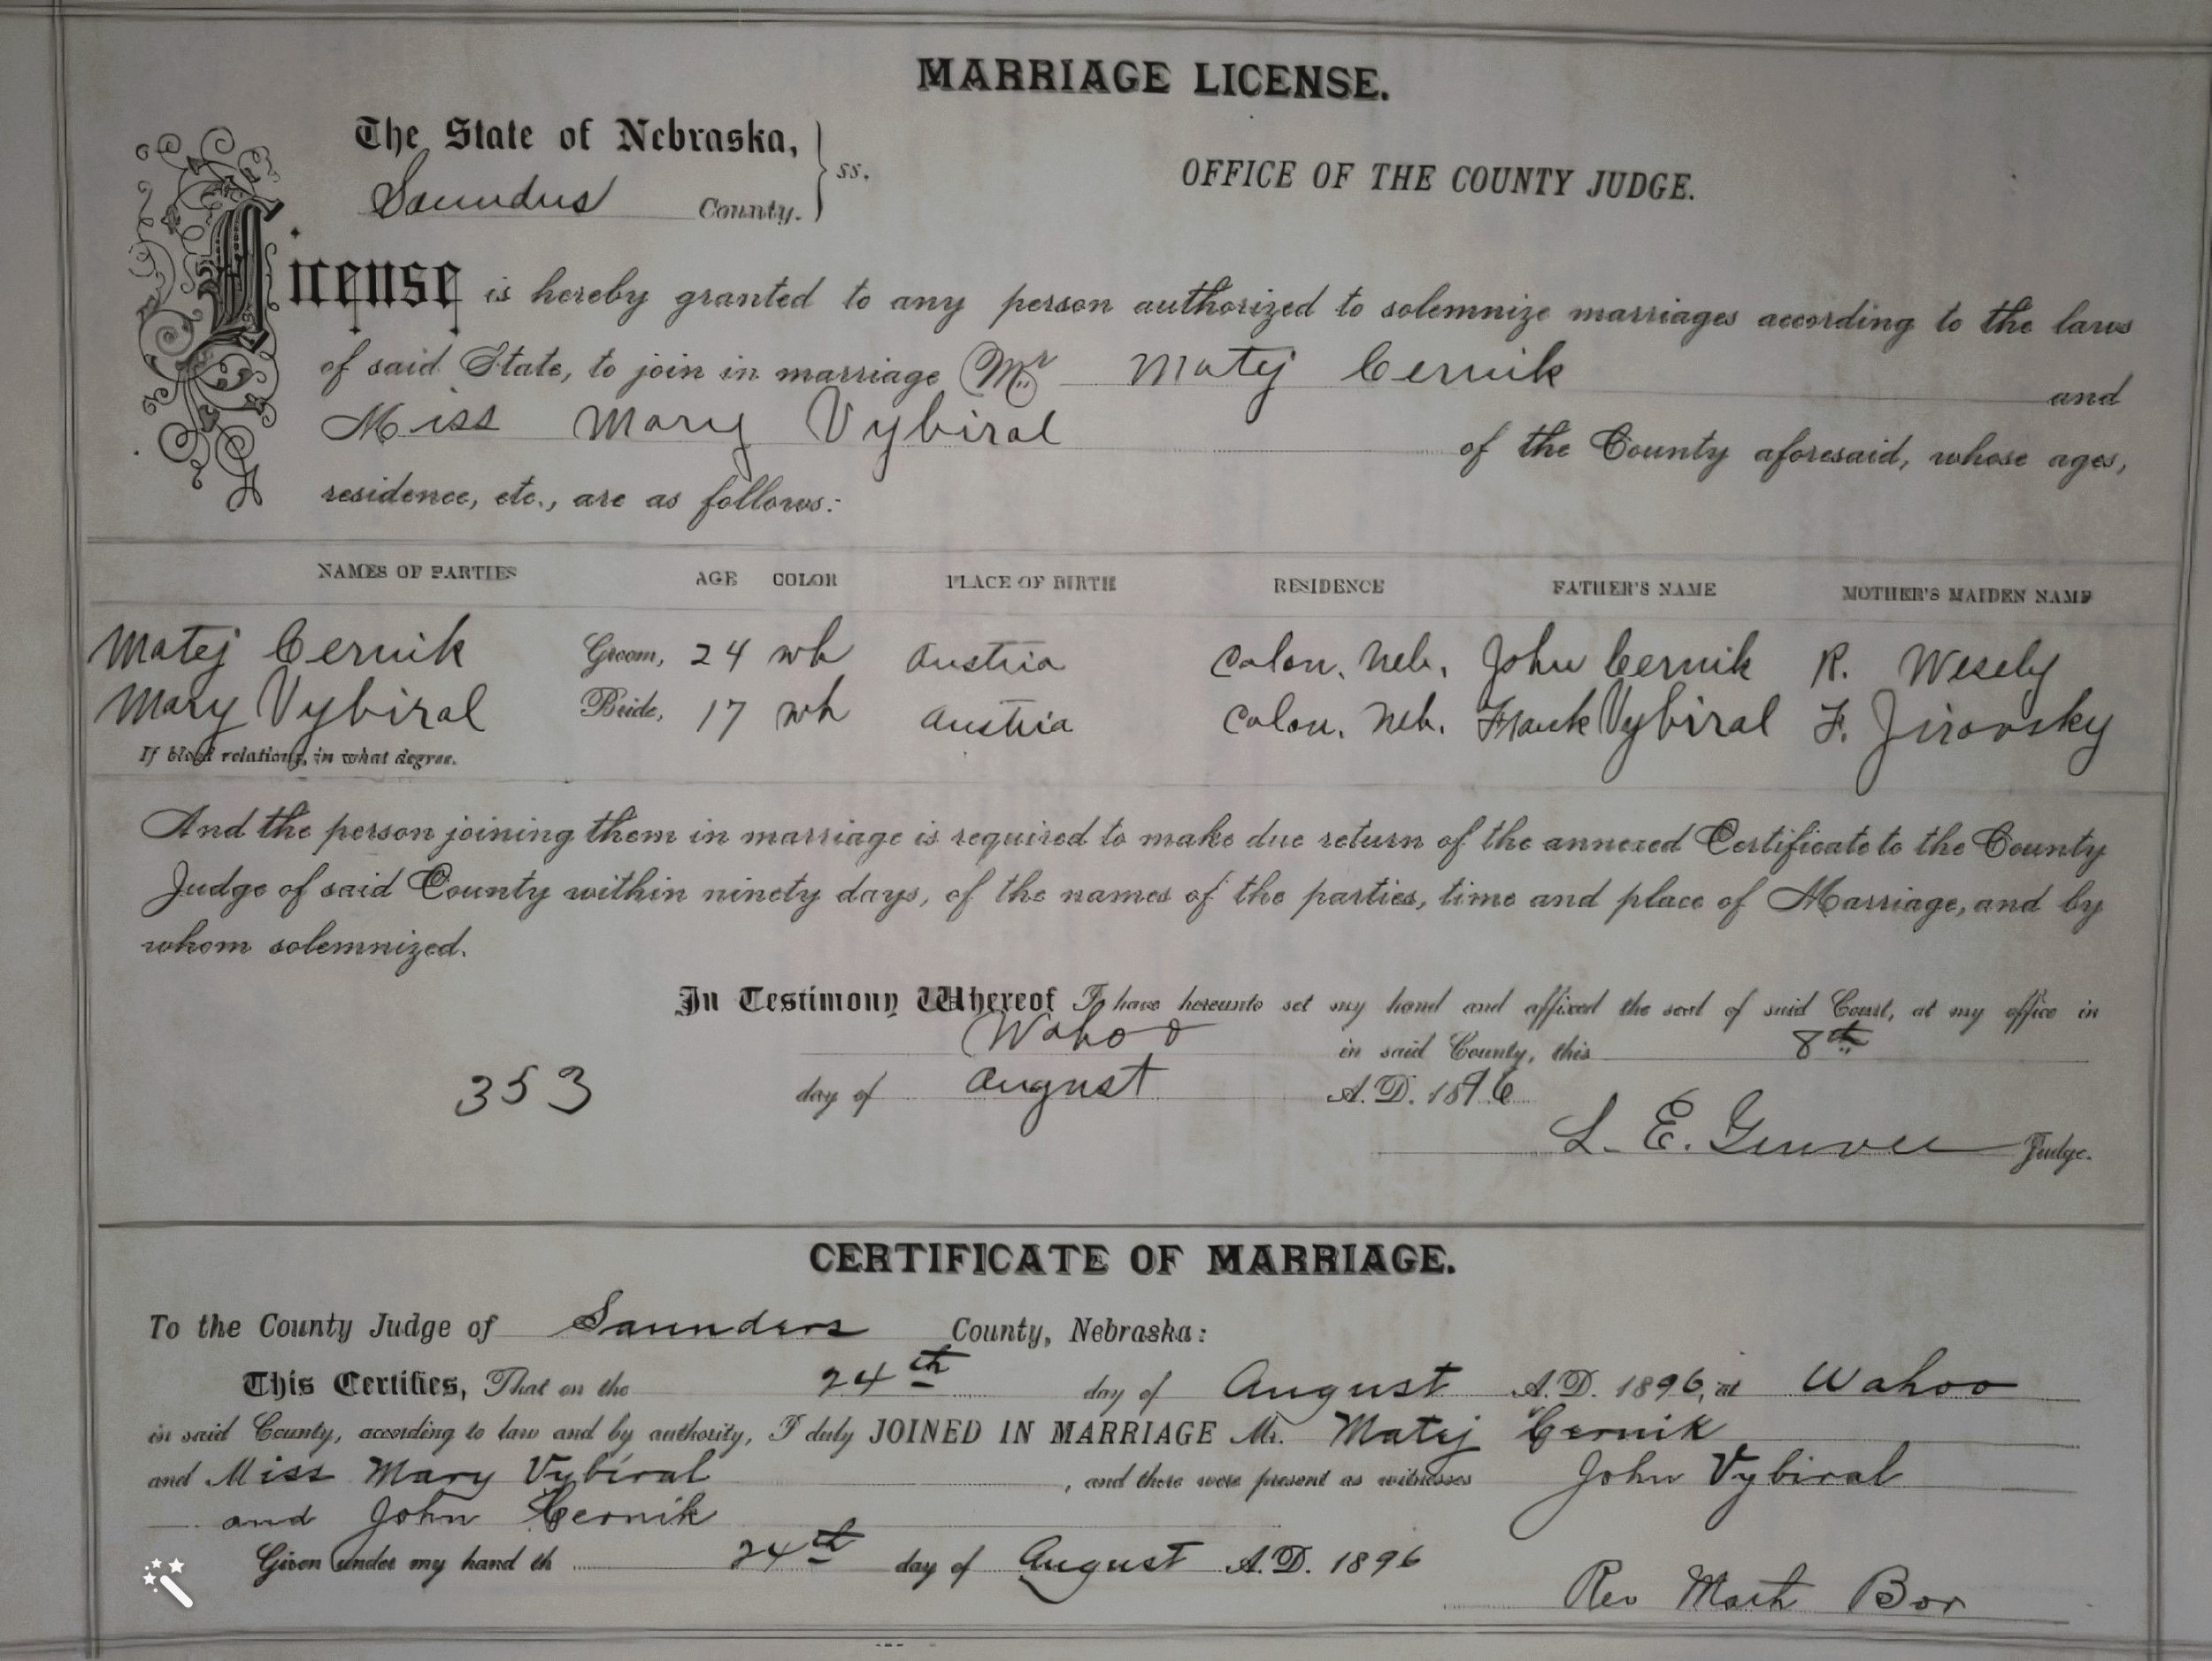 MARRIAGE LICENSE.
The State of Nebraska,
Saunders County. ss.
OFFICE OF THE COUNTY JUDGE.
License is hereby granted to any person authorized to solemnize marriages according to the laws
of said State, to join in marriage Mr Matej Cernik and
Miss Mary Vybiral of the County aforesaid, whose ages,
residence, etc., are as follows:
NAMES OF PARTIES AGE COLOR PLACE OF BIRTH RESIDENCE FATHER'S NAME MOTHER'S MAIDEN NAME
Matej Cernik Groom, 24 wh Austria Colon. Neb. John Cernik R. Wesely
Mary Vybiral Bride, 17 wh Austria Colon. Neb. Frank Vybiral F. Jirovsky
If blood relations, in what degree.
And the person joining them in marriage is required to make due return of the annexed Certificate to the County
Judge of said County within ninety days, of the names of the parties, time and place of Marriage, and by
whom solemnized.
In Testimony Whereof I have hereunto set my hand and affixed the seal of said Court, at my office in
Wahoo in said County, this 8th
353 day of August A.D. 1896
L. E. Judge.
CERTIFICATE OF MARRIAGE.
To the County Judge of Saunders County, Nebraska:
This Certifies, That on the 24th day of August A.D. 1896, at Wahoo
in said County, according to law and by authority, I duly JOINED IN MARRIAGE Mr. Matej Cernik
and Miss Mary Vybiral , and there were present as witnesses John Vybiral
and John Cernik
Given under my hand th 24th day of August A.D. 1896
Rev Math Bor